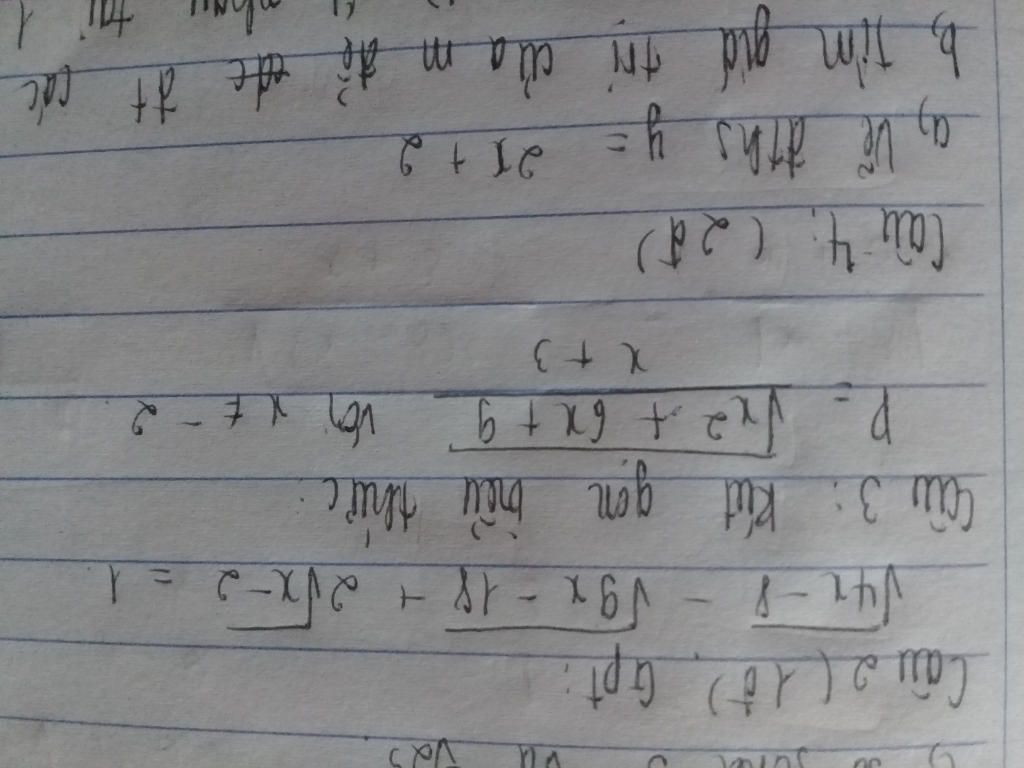 Câu 2 (1đ) Gpt:
√4x - 8 - √9x - 18 + 2√x-2 = 1
Câu 3: Rút gọn biểu thức:
P = √x2 + 6x + 9 / x + 3 với x ≠ -2
Câu 4: (2đ)
a, Vẽ đths y = 2x + 2
b, Tìm giá trị của m để các đt các